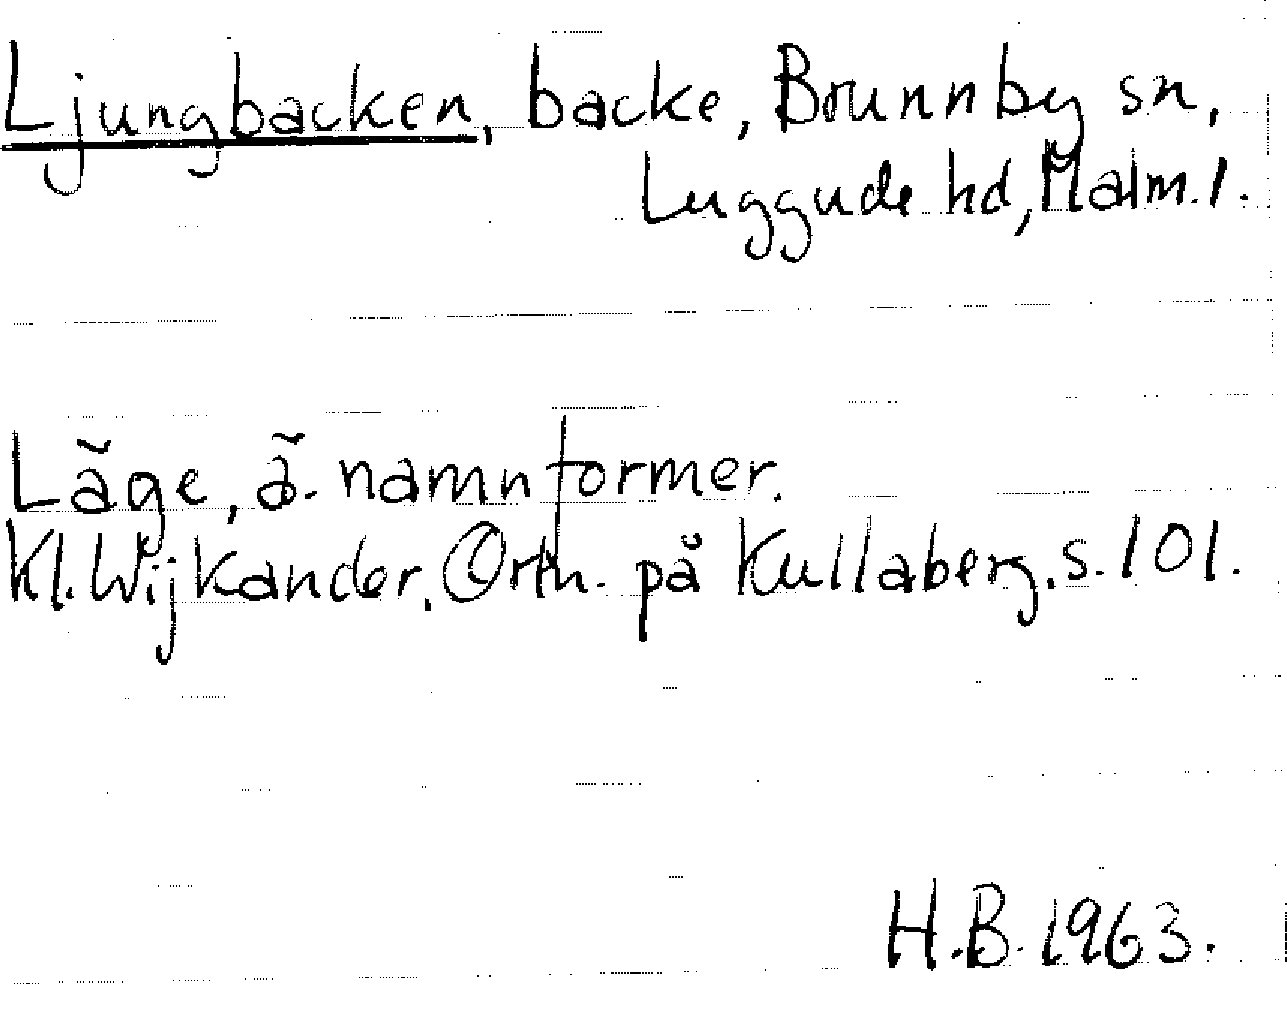 Ljungbacken, backe, Brunnby sn,
Luggude hd, Malm. l.
Läge, ä. namnformer.
Kl. Wijkander. Ortn. på Kullaberg. s. 101.
H.B. 1963.